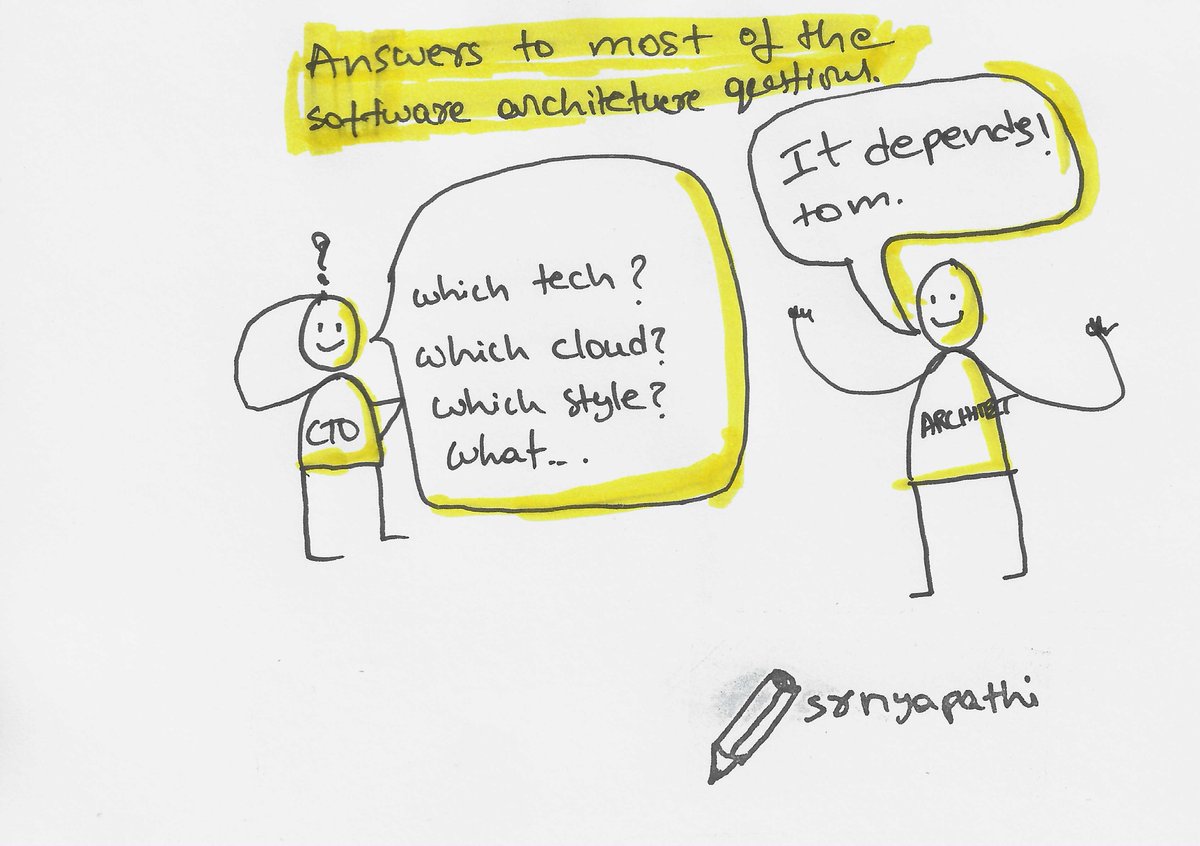 Answers to most of the
software architeture questions.
?
which tech?
which cloud?
which style?
what...
CTO
It depends!
tom.
ARCHITECT
srnyapathi